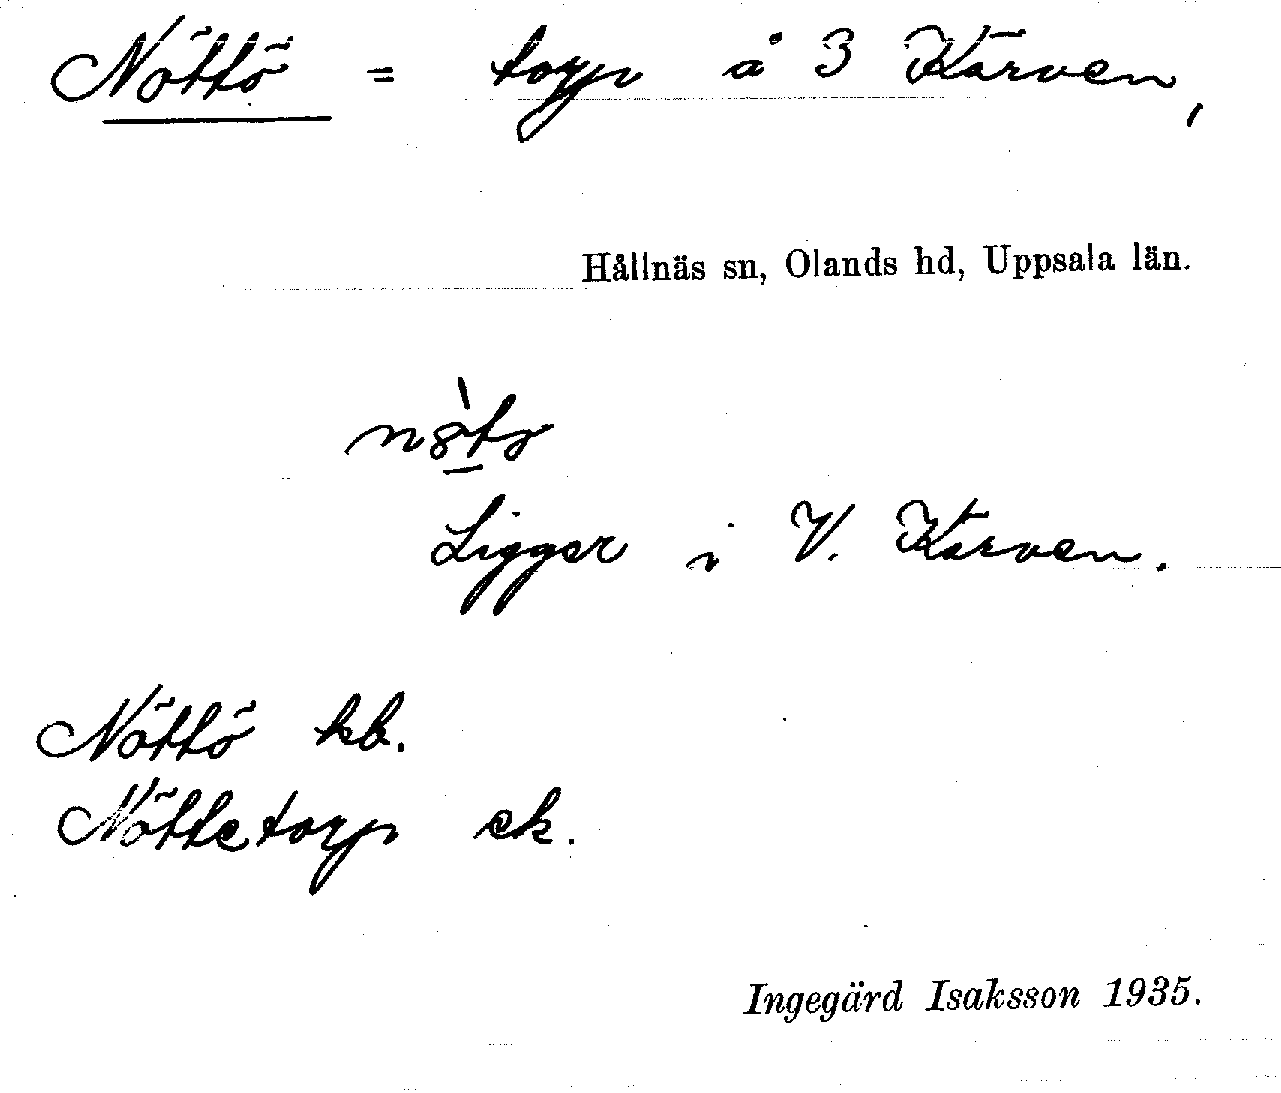 Nöttö = torp å 3 Kärven,
Hållnäs sn, Olands hd, Uppsala län.
Ligger i V. Kärven.
Nöttö kb.
Nöttetorp ek.
Ingegärd Isaksson 1935.